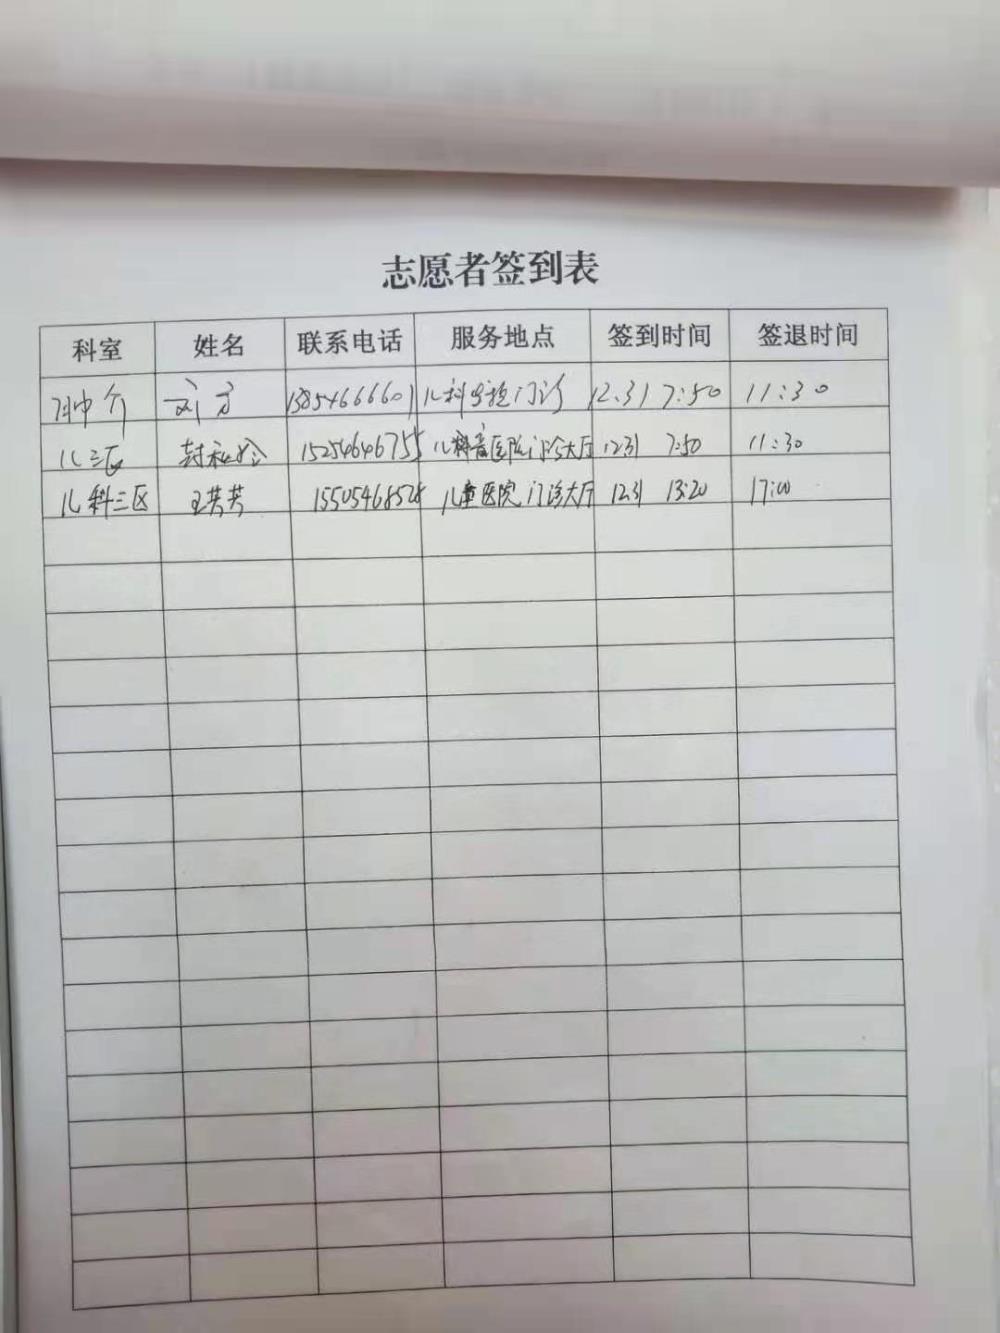 志愿者签到表
科室 姓名 联系电话 服务地点 签到时间 签退时间
肿介 刘方 13854666601 儿科 门诊 12.31 7:50 11:30
儿三区 封 15254646755 医院门诊大厅 12.31 7:50 11:30
儿科三区 王芳芳 15505468528 儿童医院门诊大厅 12.31 13:20 17:00